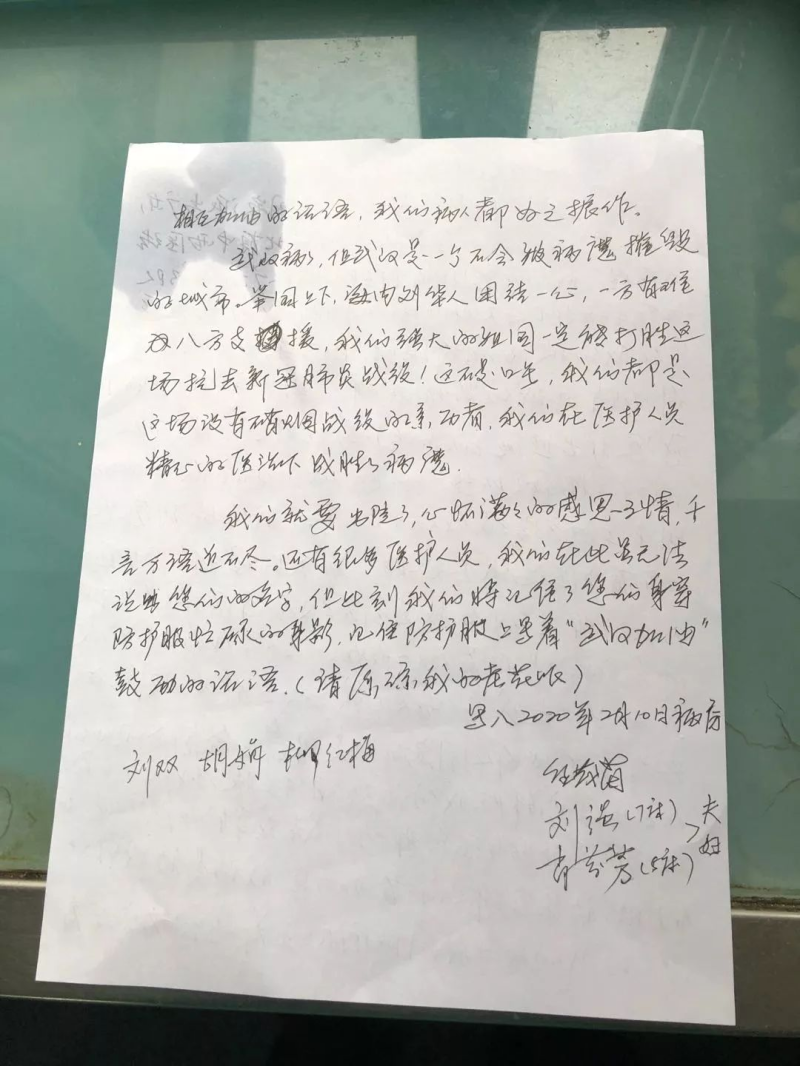 相互加油的话语，我们病人都为之振作。
武汉病了，但武汉是一个不会被病魔摧毁
的城市。举国上下，海内外华人团结一心，一方有难
八方支援，我们强大的祖国一定能打胜这
场抗击新冠肺炎战役！这不是口号，我们都是
这场没有硝烟战役的亲历者，我们在医护人员
精心的医治下战胜了病魔.
我们就要出院了，心怀满满的感恩之情，千
言万语道不尽。还有很多医护人员，我们在此虽无法
说出您们的名字，但此刻我们将记住了您们身穿
防护服忙碌的身影，记住防护服上写着“武汉加油”
鼓励的话语.（请原谅我的老花眼）
写入2020年2月10日病房
刘双 胡娟 柳红梅
刘 (7床) 夫
芳 (5床) 妇